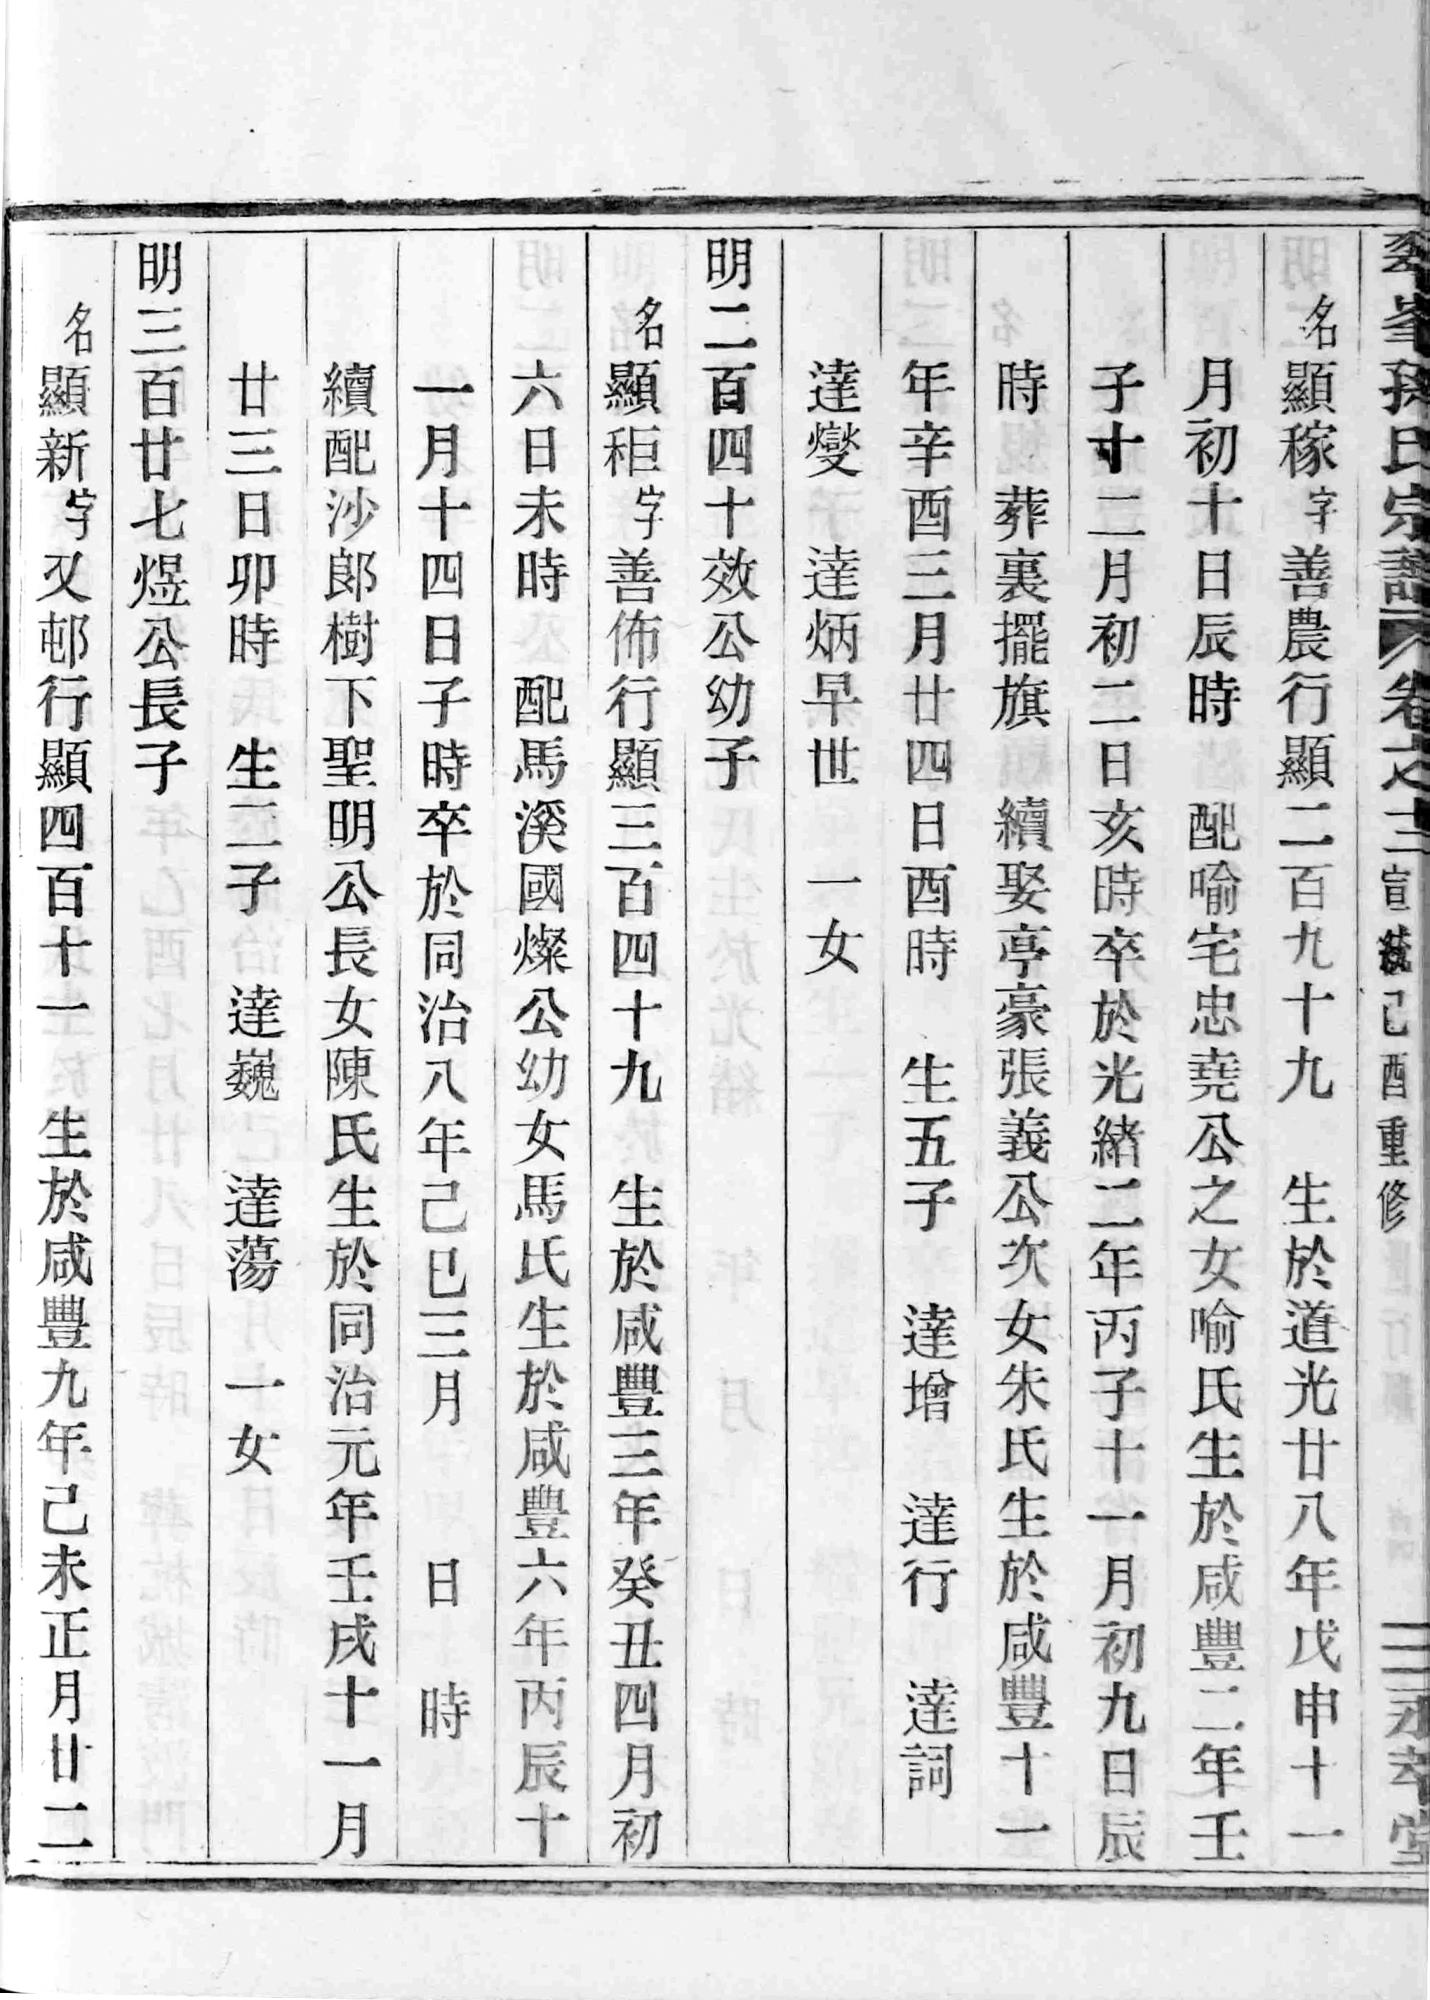 峯孫氏宗譜 卷之十三 宣統己酉重修 三 永萃堂
名顯稼字善農行顯二百九十九 生於道光廿八年戊申十一
月初十日辰時 配喻宅忠堯公之女喻氏生於咸豐二年壬
子十二月初二日亥時卒於光緒二年丙子十一月初九日辰
時 葬裏擺旗 續娶亭豪張義公次女朱氏生於咸豐十一
年辛酉三月廿四日酉時 生五子 達增 達行 達詞
達燮 達炳早世 一女
明二百四十效公幼子
名顯秬字善佈行顯三百四十九 生於咸豐三年癸丑四月初
六日未時 配馬溪國燦公幼女馬氏生於咸豐六年丙辰十
一月十四日子時卒於同治八年己巳三月 日 時
續配沙郎樹下聖明公長女陳氏生於同治元年壬戌十一月
廿三日卯時 生二子 達巍 達蕩 一女
明三百廿七煜公長子
名顯新字又邨行顯四百十一 生於咸豐九年己未正月廿二